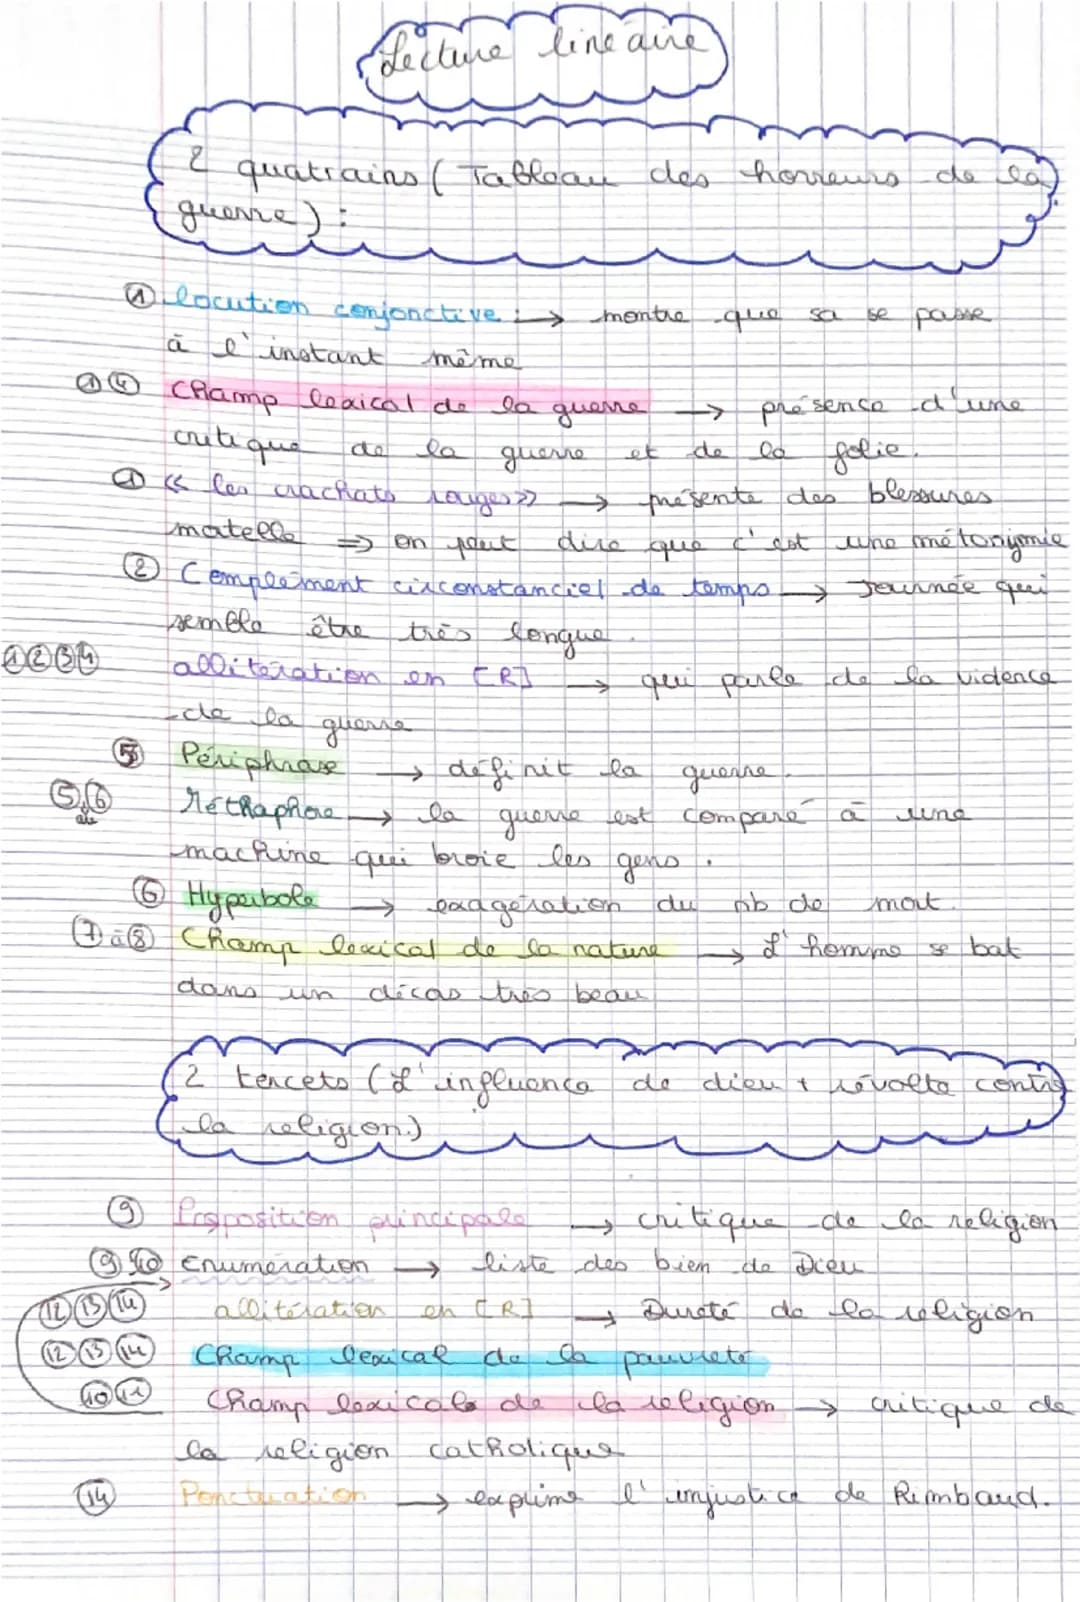 Lecture linéaire
2 quatrains (Tableau des horreurs de la
guerre) :
① locution conjonctive : → montre que sa se passe
à l'instant même
① ④ Champ lexical de la guerre → présence d'une
critique de la guerre et de la folie.
① « les crachats rouges » → présente des blessures
matelle ⇒ on peut dire que c'est une métonymie
② Complément circonstanciel de temps → Journée qui
semble être très longue.
① ② ③ ④ allitération en [R] → qui parle de la vidence
de la guerre
⑤ Périphrase → définit la guerre.
⑤,⑥ Méthaphore → la guerre est comparé à une
machine qui broie les gens.
⑥ Hyperbole → exagération du nb de mort.
⑦ à ⑧ Champ lexical de la nature → L'homme se bat
dans un décas très beau
2 tercets (L'influence de dieu + révolte contre
la religion.)
⑨ Proposition principale → critique de la religion
⑨ ⑩ Enumération → liste des bien de Dieu
⑫ ⑬ ⑭ allitération en [R] → Dureté de la religion
⑫ ⑬ ⑭ Champ lexical de la pauvreté
⑩ ⑪ Champ lexicale de la religion → critique de
la religion catholique
⑭ Ponctuation → exprime l'injustice de Rimbaud.